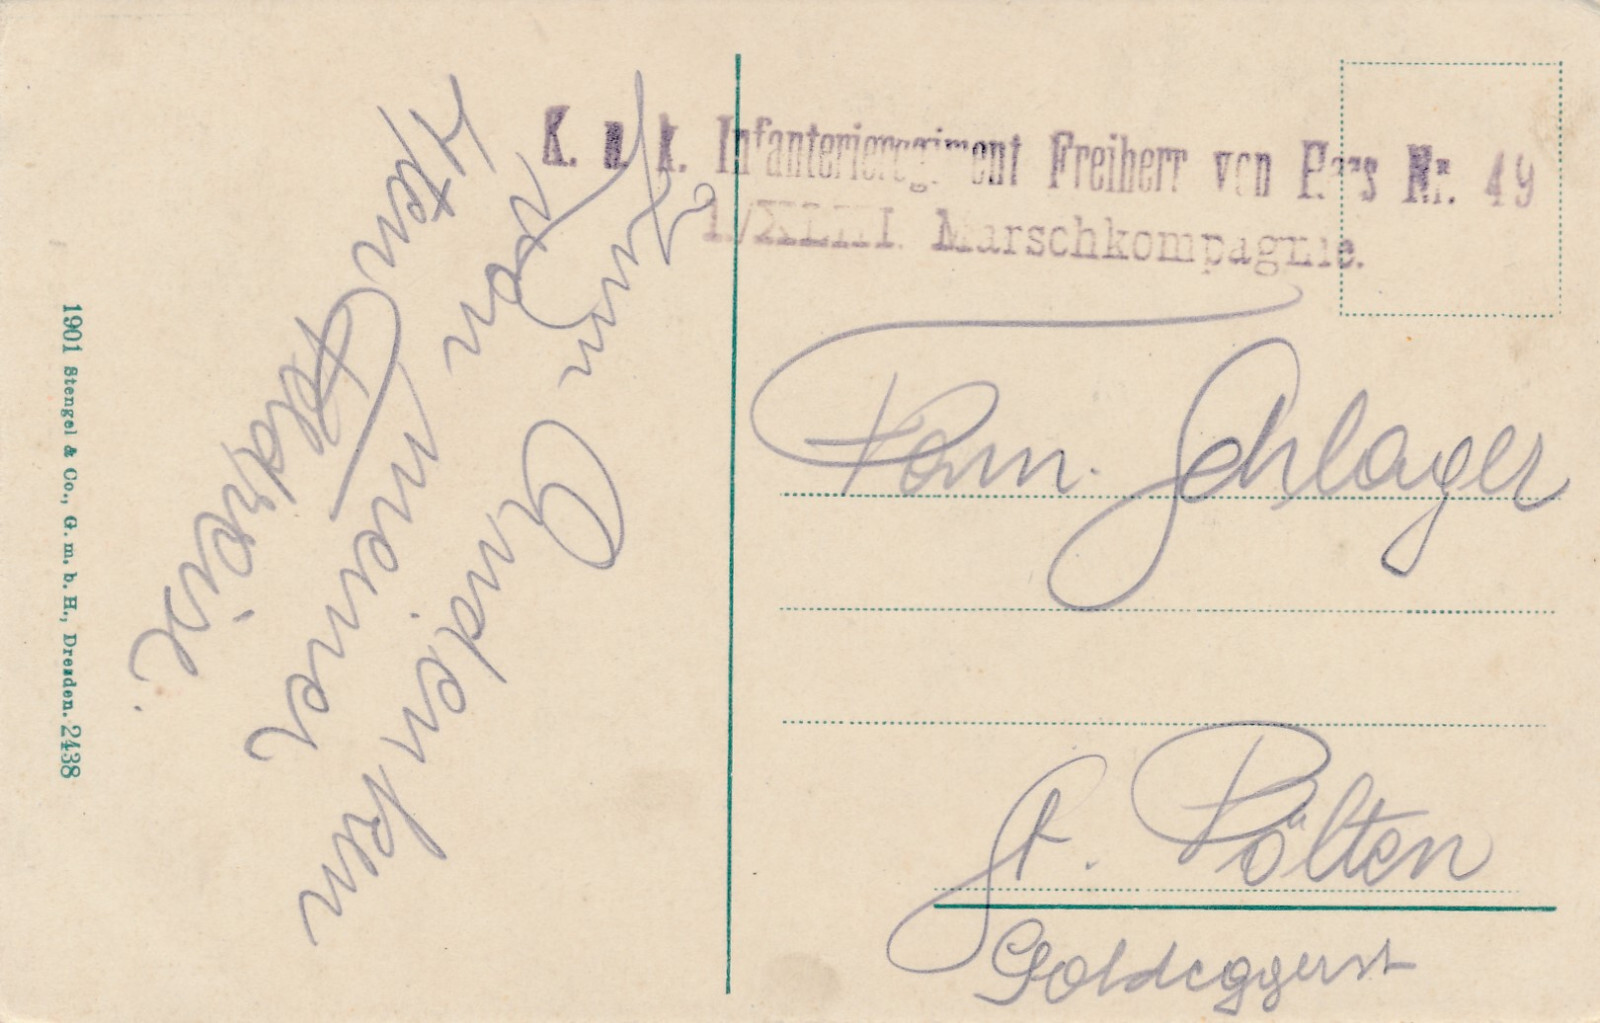 K. u. k. Infanterieregiment Freiherr von Hess Nr. 49
1./XLIII. Marschkompagnie.
Zum Andenken
von meiner
4ten Feldreise.
Fam. Schlager
St. Pölten
Goldeggerst
1901 Stengel & Co., G. m. b. H., Dresden. 2438